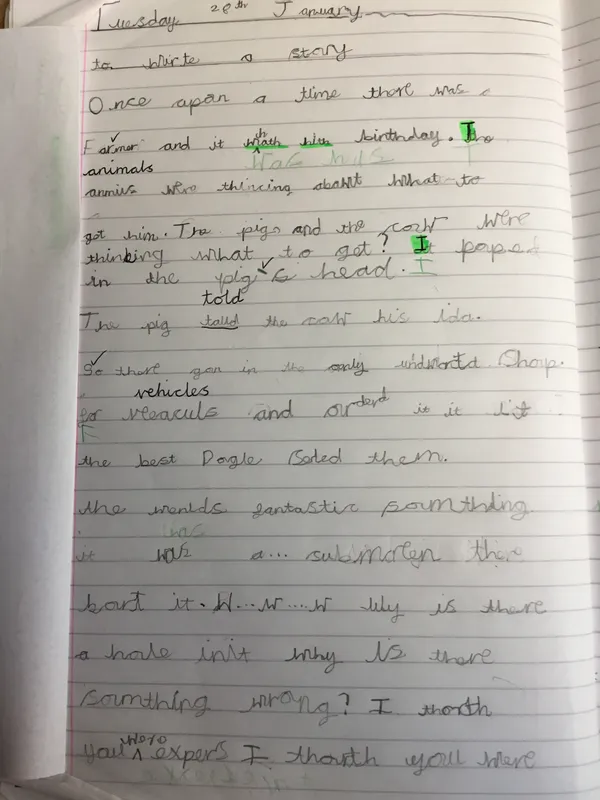 Tuesday 28th January
to wirte a story
Once apon a time there was a
Farmer and it math his birthday. The
was his T
animals
anmils were thincing abawt what to
got him. The pigs and the cow were
thinking what to got? It poped
in the pig's head. I
told
The pig tauld the cow his ida.
So there gon in the only undworld Shop.
vehicles
for veaculs and orderd it it list
F
the best Dogle Soled them.
the worlds fantastic somthing
was
it was a... submoren there
bort it. W...w...w lily is there
a hole init why is there
somthing wrong? I thorth
were
you expers I thorth you were